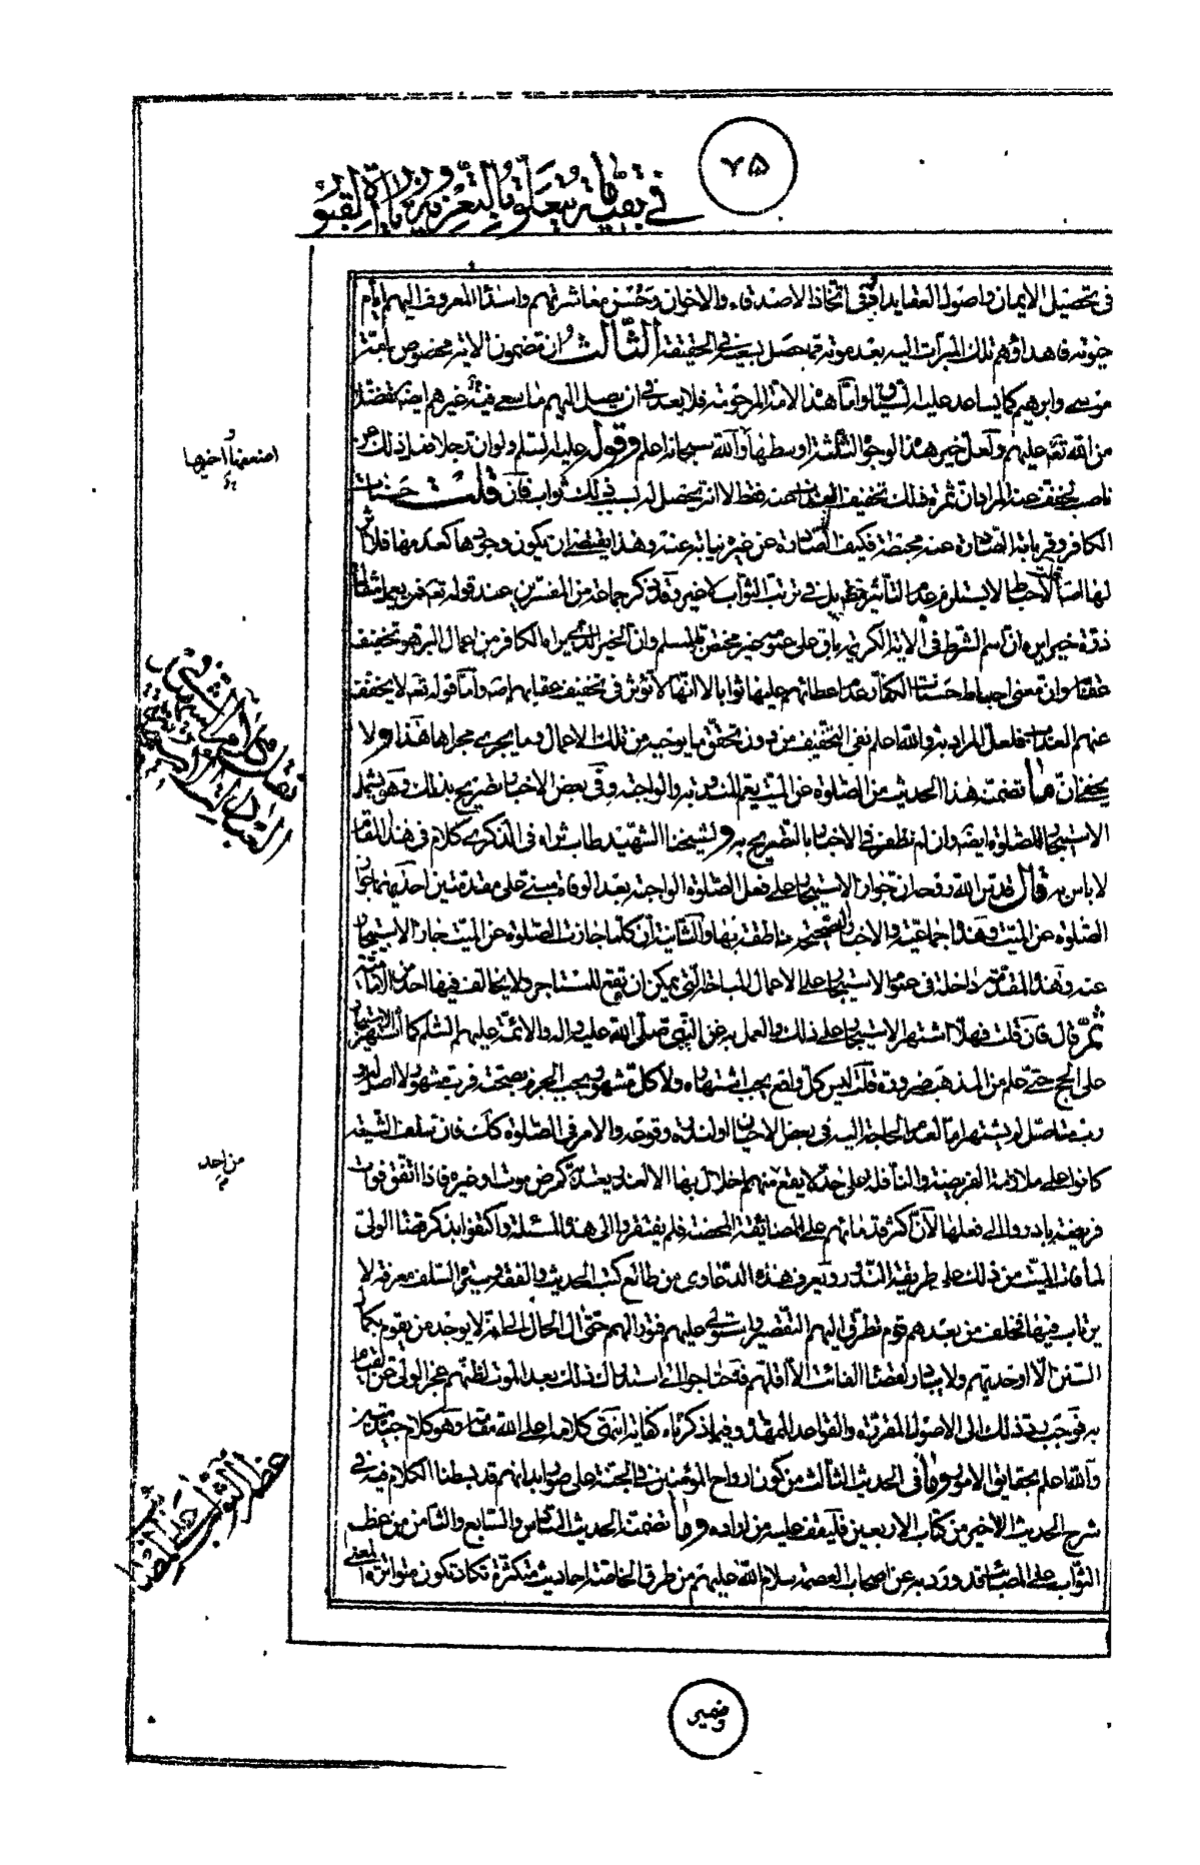 ٧٥
في بقية ما يتعلق بالتعزية وزيارة القبور
في تحصيل الايمان واصول العقايد او في اتخاذ الاصدقاء والاخوان وحسن معاشرتهم واسداء المعروف اليهم ايام
حيوته فاهداؤهم تلك المبرات اليه بعد موته مما حصل بسعيه في الحقيقة الثالث ان مضمون الاية مخصوص بامة
موسى وابرهيم كما يساعد عليه السياق واما هذه الامة المرحومة فلا بعد في ان يصل اليهم ما سعى فيه غيرهم ايضا تفضلا
من الله تعه عليهم ولعل خير هذه الوجوه الثلثة اوسطها والله سبحانه اعلم وقوله عليه السلم ولو ان رجلا فعل ذلك عن
ناصب لخفف عنه المراد ان ثمرة ذلك تخفيف العذاب عنه فقط لا انه يحصل له بسبب ذلك ثواب فان قلت حسنات
الكافر وقرباته الصادرة عنه محبطة فكيف الصادرة عن غيره نيابة عنه وهذا يقتضي ان يكون وجودها كعدمها فلا اثر
لها اصلا قلت الاحباط لا يستلزم عدم التاثير مط بل في ترتب الثواب لا غير وقد ذكر جماعة من المفسرين عند قوله تعه فمن يعمل مثقال
ذرة خيرا يره ان اسم الشرط في الاية الكريمة باق على عمومه غير مختص بالمسلم وان الخير الذي يراه الكافر من اعمال البر هو تخفيف
عقابه وان معنى احباط حسنات الكفار عدم اعطائهم عليها ثوابا لا انها لا تؤثر في تخفيف عقابهم ايضا واما قوله تعه لا يخفف
عنهم العذاب فلعل المراد به والله اعلم نفي التخفيف من دون تحقق ما يوجبه من تلك الاعمال وما يجري مجراها هذا ولا
يخفى ان ما تضمنته هذا الحديث من الصلوة عن الميت يعم المندوبة والواجبة وفي بعض الاخبار تصريح بذلك وهو يشمل
الاستيجار للصلوة ايضا وان لم نظفر في الاخبار بالتصريح به ولشيخنا الشهيد طاب ثراه في الذكرى كلام في هذا المقام
لا باس به قال قدس الله روحه ان جواز الاستيجار على فعل الصلوة الواجبة بعد الوفاة مبني على مقدمتين احديهما جواز
الصلوة عن الميت وهذه اجماعية والاخبار الصحيحة ناطقة بها والثانية ان كلما جازت الصلوة عن الميت جاز الاستيجار
عنه وهذه المقدمة داخلة في عموم الاستيجار على الاعمال المباحة التي يمكن ان تقع للمستاجر ولا يخالف فيها احد من الامامية
ثم قال فان قلت فهلا اشتهر الاستيجار على ذلك والعمل به عن النبي صلى الله عليه واله والائمة عليهم السلم كما اشتهر الاستيجار
على الحج حتى علم من المذهب ضرورة قلت ليس كل واقع يجب اشتهاره ولا كل مشهور يجب الجزم بصحته فرب مشهور لا اصل له و
رب متاصل لم يشتهر اما لعدم الحاجة اليه في بعض الاحيان او لندرة وقوعه والامر في الصلوة كذلك فان سلف الشيعة
كانوا على ملازمة الفريضة والنافلة على حد لا يقع منهم اخلال بها الا لعذر يعتد به كمرض موت او غيره فاذا اتفق فوات
فريضة بادروا الى فعلها لان اكثر قدمائهم على المضايقة المحضة فلم يفتقروا الى هذه المسئلة واكتفوا بذكر قضاء الولي
لما فات الميت من ذلك على طريقة الندور ويعرف هذه الدعاوى من طالع كتب الحديث والفقه وسيرة السلف معرفة لا
يرتاب فيها فخلف من بعدهم قوم تطرق اليهم التقصير واستولى عليهم فتور الهمم حتى ال الحال الى انه لا يوجد من يقوم بكمال
السنن الا اوحديهم ولا يبادر لقضاء الفائت الا اقلهم فاحتاجوا الى استدراك ذلك بعد الموت لظنهم عجز الولي عن القيام
به فوجب رد ذلك الى الاصول المقررة والقواعد الممهدة وفيما ذكرناه كفاية انتهى كلامه اعلى الله مقامه وهو كلام جيد متين
والله اعلم بحقايق الامور وما في الحديث الثالث من كون ارواح المؤمنين في الجنة على صور ابدانهم قد بسطنا الكلام فيه في
شرح الحديث الاخير من كتاب الاربعين فليقف عليه من اراده وما تضمنته الحديث السادس والسابع والثامن من عظم
الثواب على المصائب قد ورد به عن اصحاب العصمة سلام الله عليهم من طرق الخاصة احاديث متكثرة تكاد تكون متواترة المعنى
من احد
عظم الثواب على المصائب